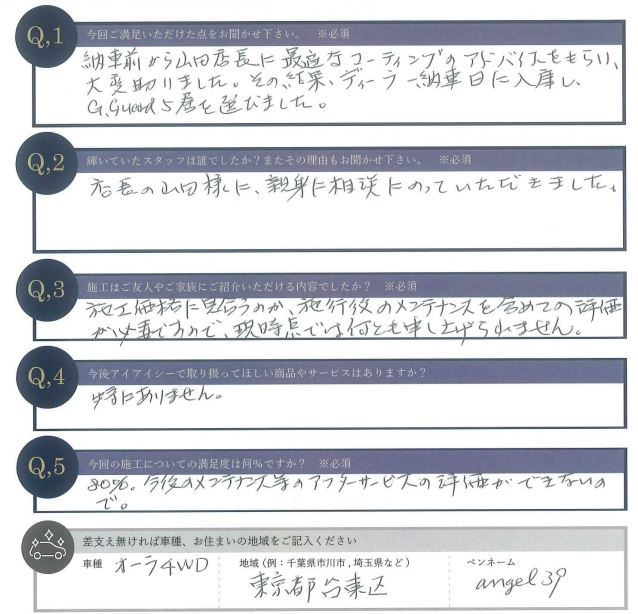 Q,1 今回ご満足いただけた点をお聞かせ下さい。 ※必須
納車前から山田店長に最適なコーティングのアドバイスをもらい、
大変助りました。その結果、ディーラー納車日に入庫し、
G.Guard5層を選びました。
Q,2 輝いていたスタッフは誰でしたか?またその理由もお聞かせ下さい。 ※必須
店長の山田様に、親身に相談にのっていただきました。
Q,3 施工はご友人やご家族にご紹介いただける内容でしたか? ※必須
施工価格に見合うのか、施行後のメンテナンスを含めての評価
が必要ですので、現時点では何とも申し上げられません。
Q,4 今後アイアイシーで取り扱ってほしい商品やサービスはありますか?
特にありません。
Q,5 今回の施工についての満足度は何%ですか? ※必須
80%。今後のメンテナンス等のアフターサービスの評価ができないの
で。
差支え無ければ車種、お住まいの地域をご記入ください
車種 オーラ4WD 地域(例:千葉県市川市,埼玉県など) 東京都台東区 ペンネーム angel39